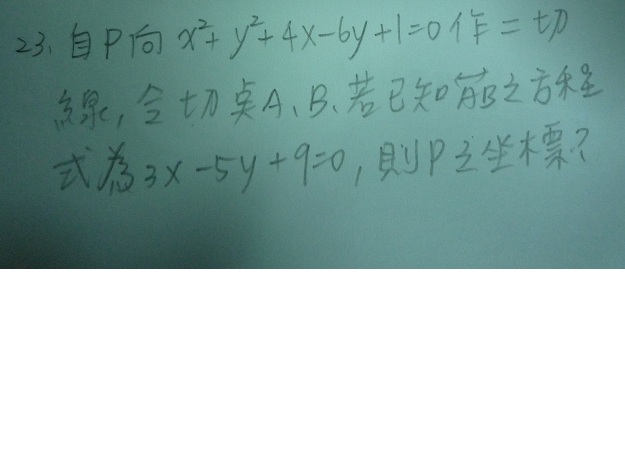 23. 自P向 x²+y²+4x-6y+1=0作二切
線, 令切點A、B、若已知AB之方程
式為3x-5y+9=0, 則P之坐標?